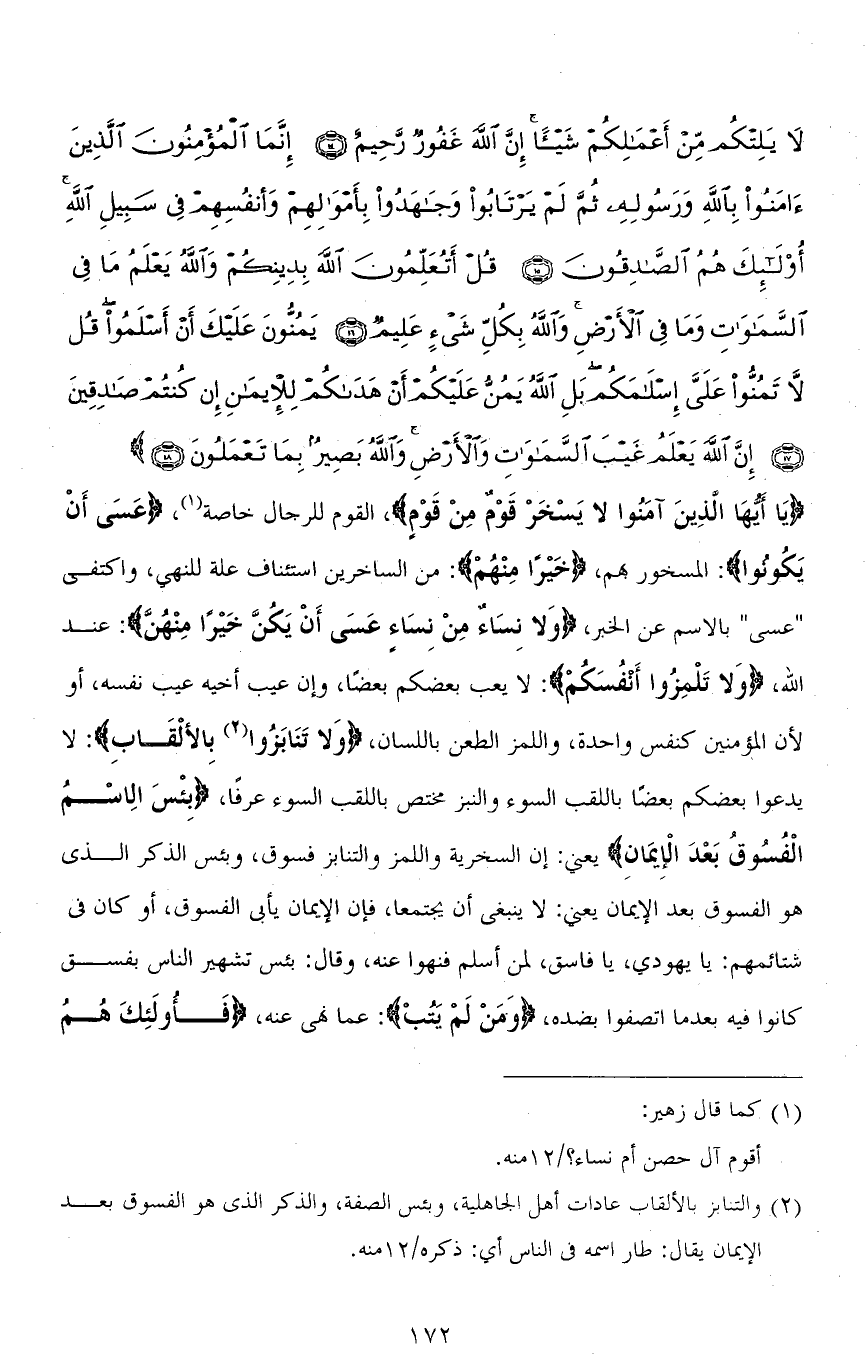 لَا يَلِتْكُم مِّنْ أَعْمَٰلِكُمْ شَيْـًٔا ۚ إِنَّ ٱللَّهَ غَفُورٌ رَّحِيمٌ ﴿١٤﴾ إِنَّمَا ٱلْمُؤْمِنُونَ ٱلَّذِينَ
ءَامَنُوا۟ بِٱللَّهِ وَرَسُولِهِۦ ثُمَّ لَمْ يَرْتَابُوا۟ وَجَٰهَدُوا۟ بِأَمْوَٰلِهِمْ وَأَنفُسِهِمْ فِى سَبِيلِ ٱللَّهِ ۚ
أُو۟لَٰٓئِكَ هُمُ ٱلصَّٰدِقُونَ ﴿١٥﴾ قُلْ أَتُعَلِّمُونَ ٱللَّهَ بِدِينِكُمْ وَٱللَّهُ يَعْلَمُ مَا فِى
ٱلسَّمَٰوَٰتِ وَمَا فِى ٱلْأَرْضِ ۚ وَٱللَّهُ بِكُلِّ شَىْءٍ عَلِيمٌ ﴿١٦﴾ يَمُنُّونَ عَلَيْكَ أَنْ أَسْلَمُوا۟ ۖ قُل
لَّا تَمُنُّوا۟ عَلَىَّ إِسْلَٰمَكُم ۖ بَلِ ٱللَّهُ يَمُنُّ عَلَيْكُمْ أَنْ هَدَىٰكُمْ لِلْإِيمَٰنِ إِن كُنتُمْ صَٰدِقِينَ
﴿١٧﴾ إِنَّ ٱللَّهَ يَعْلَمُ غَيْبَ ٱلسَّمَٰوَٰتِ وَٱلْأَرْضِ ۚ وَٱللَّهُ بَصِيرٌۢ بِمَا تَعْمَلُونَ ﴿١٨﴾ ﴾
﴿يَا أَيُّهَا الَّذِينَ آمَنُوا لا يَسْخَرْ قَوْمٌ مِنْ قَوْمٍ﴾، القوم للرجال خاصة(١)، ﴿عَسَى أَنْ
يَكُونُوا﴾: المسخور بهم، ﴿خَيْرًا مِنْهُمْ﴾: من الساخرين استئناف علة للنهي، واكتفى
"عسى" بالاسم عن الخبر، ﴿وَلا نِسَاءٌ مِنْ نِسَاءٍ عَسَى أَنْ يَكُنَّ خَيْرًا مِنْهُنَّ﴾: عند
الله، ﴿وَلا تَلْمِزُوا أَنْفُسَكُمْ﴾: لا يعب بعضكم بعضًا، وإن عيب أخيه عيب نفسه، أو
لأن المؤمنين كنفس واحدة، واللمز الطعن باللسان، ﴿وَلا تَنَابَزُوا(٢) بِالأَلْقَابِ﴾: لا
يدعوا بعضكم بعضًا باللقب السوء والنبز مختص باللقب السوء عرفًا، ﴿بِئْسَ الِاسْمُ
الْفُسُوقُ بَعْدَ الْإِيمَانِ﴾ يعني: إن السخرية واللمز والتنابز فسوق، وبئس الذكر الذى
هو الفسوق بعد الإيمان يعني: لا ينبغى أن يجتمعا، فإن الإيمان يأبى الفسوق، أو كان فى
شتائمهم: يا يهودي، يا فاسق، لمن أسلم فنهوا عنه، وقال: بئس تشهير الناس بفسق
كانوا فيه بعدما اتصفوا بضده، ﴿وَمَنْ لَمْ يَتُبْ﴾: عما نهى عنه، ﴿فَأُولَئِكَ هُمُ
(١) كما قال زهير:
أقوم آل حصن أم نساء؟/١٢منه.
(٢) والتنابز بالألقاب عادات أهل الجاهلية، وبئس الصفة، والذكر الذى هو الفسوق بعد
الإيمان يقال: طار اسمه فى الناس أي: ذكره/١٢منه.
١٧٢